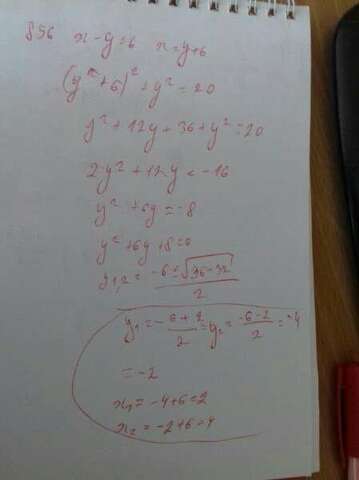 896 x-y=6 x=y+6
(y+6)²+y²=20
y²+12y+36+y²=20
2y²+12y=-16
y²+6y=-8
y²+6y+8=0
y₁,₂=(-6±√(36-32))/2
y₁=(-6+2)/2= y₂=(-6-2)/2=-4
=-2
x₁=-4+6=2
x₂=-2+6=4